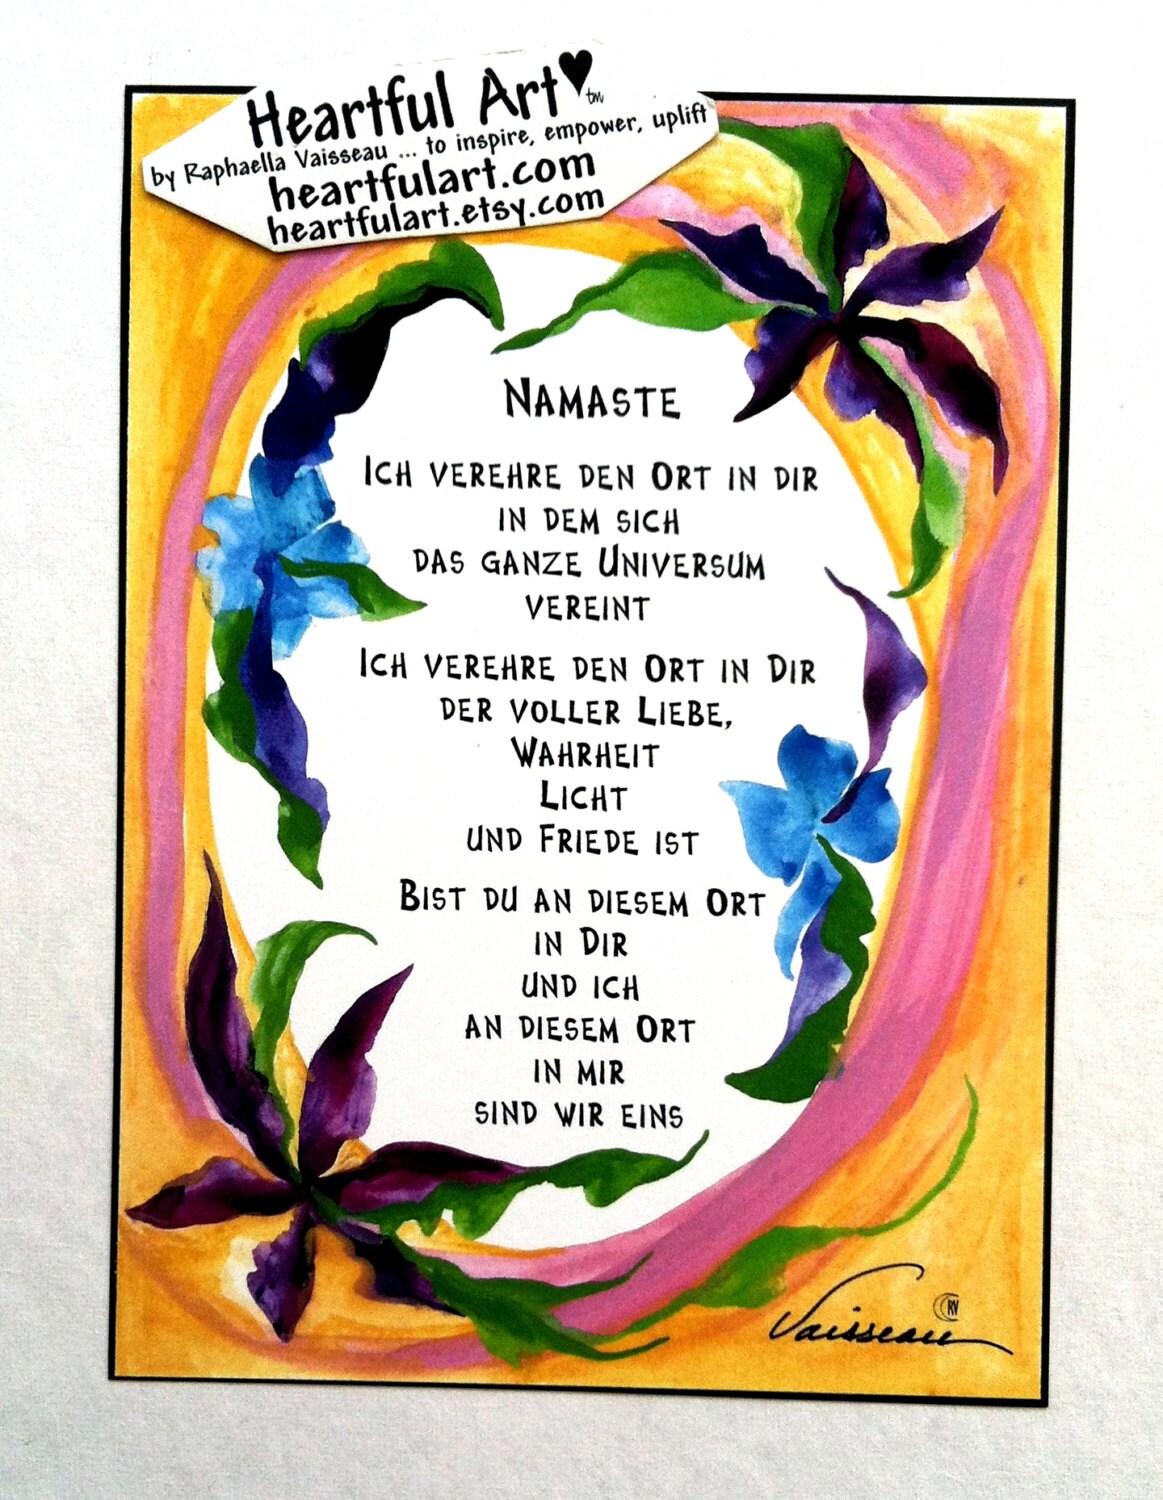 Heartful Art ♥ tm
by Raphaella Vaisseau ... to inspire, empower, uplift
heartfulart.com
heartfulart.etsy.com
NAMASTE
ICH VEREHRE DEN ORT IN DIR
IN DEM SICH
DAS GANZE UNIVERSUM
VEREINT
ICH VEREHRE DEN ORT IN DIR
DER VOLLER LIEBE,
WAHRHEIT
LICHT
UND FRIEDE IST
BIST DU AN DIESEM ORT
IN DIR
UND ICH
AN DIESEM ORT
IN MIR
SIND WIR EINS
RV
Vaisseau